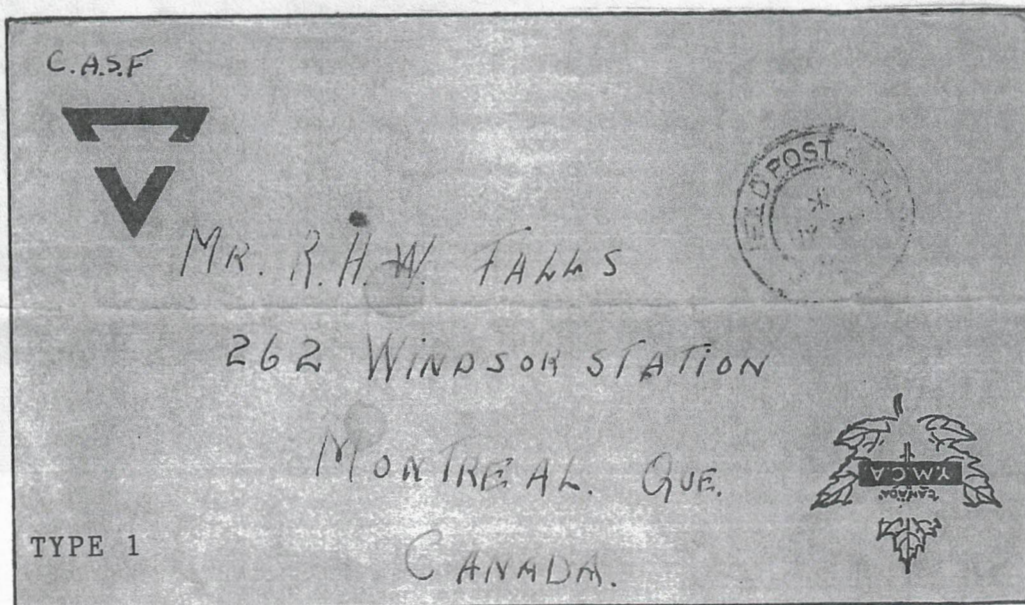 C.A.S.F
FIELD POST
MR. R.H.W. FALLS
262 WINDSOR STATION
MONTREAL. QUE.
Y.M.C.A
CANADA
TYPE 1
CANADA.